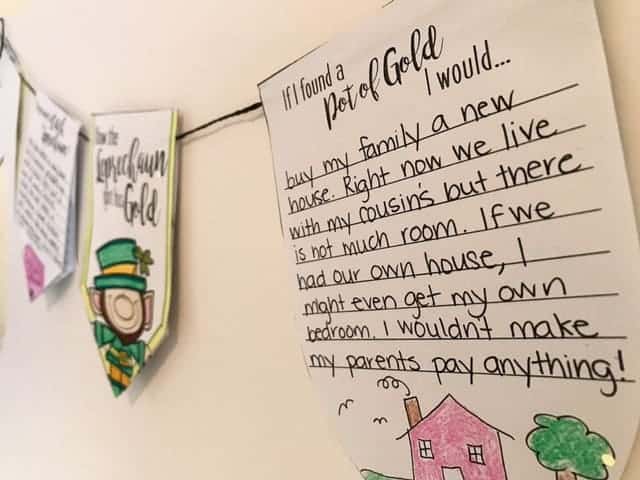 How the
Leprechaun
got his Gold
If I found a
Pot of Gold
I would...
buy my family a new
house. Right now we live
with my cousin's but there
is not much room. If we
had our own house, I
might even get my own
bedroom. I wouldn't make
my parents pay anything!